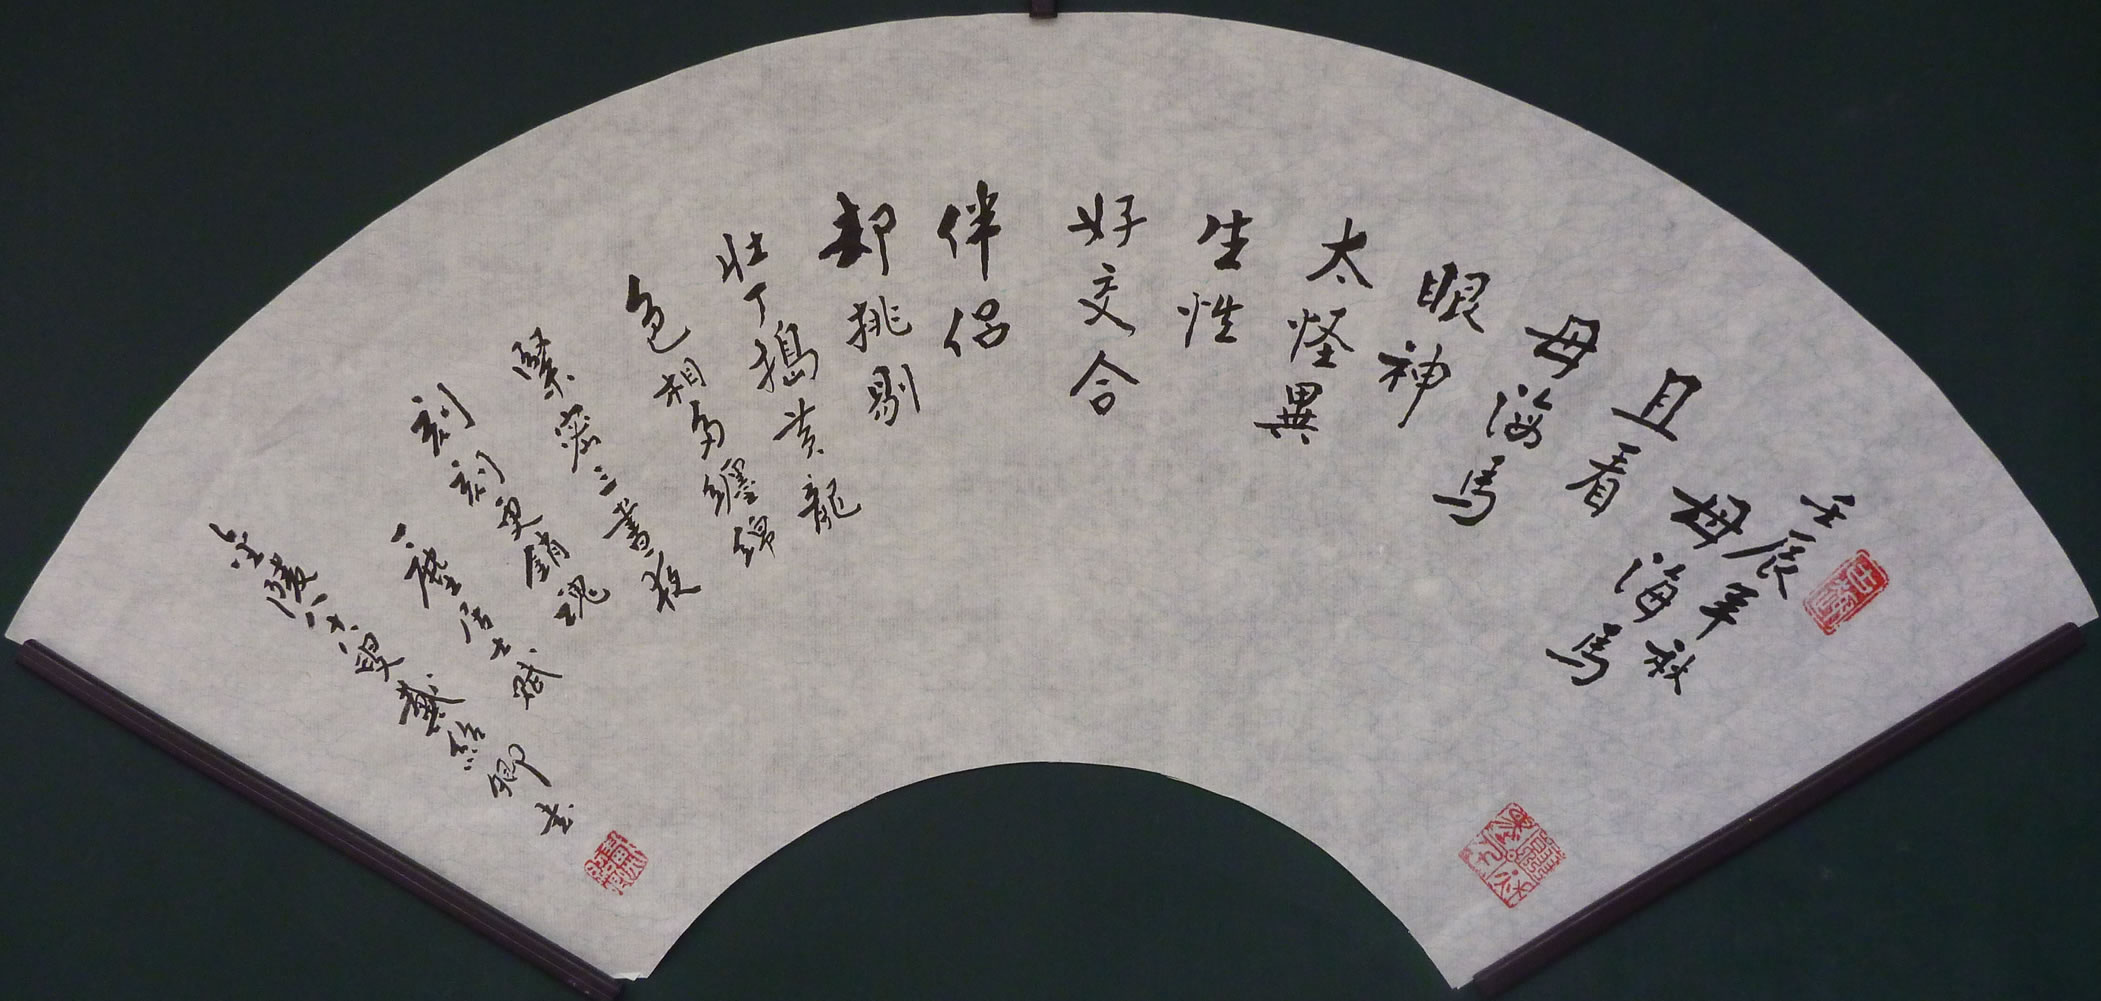 壬辰年秋
母海馬
且看
母海馬
眼神
太怪異
生性
好交合
伴侣
却挑剔
壮丁搗黄龍
色相多纏綿
緊密三畫夜
刻刻更銷魂
一塵居士賦
金陵八十叟戴紹卿書